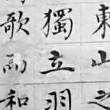 東
獨立羽
歌雨和